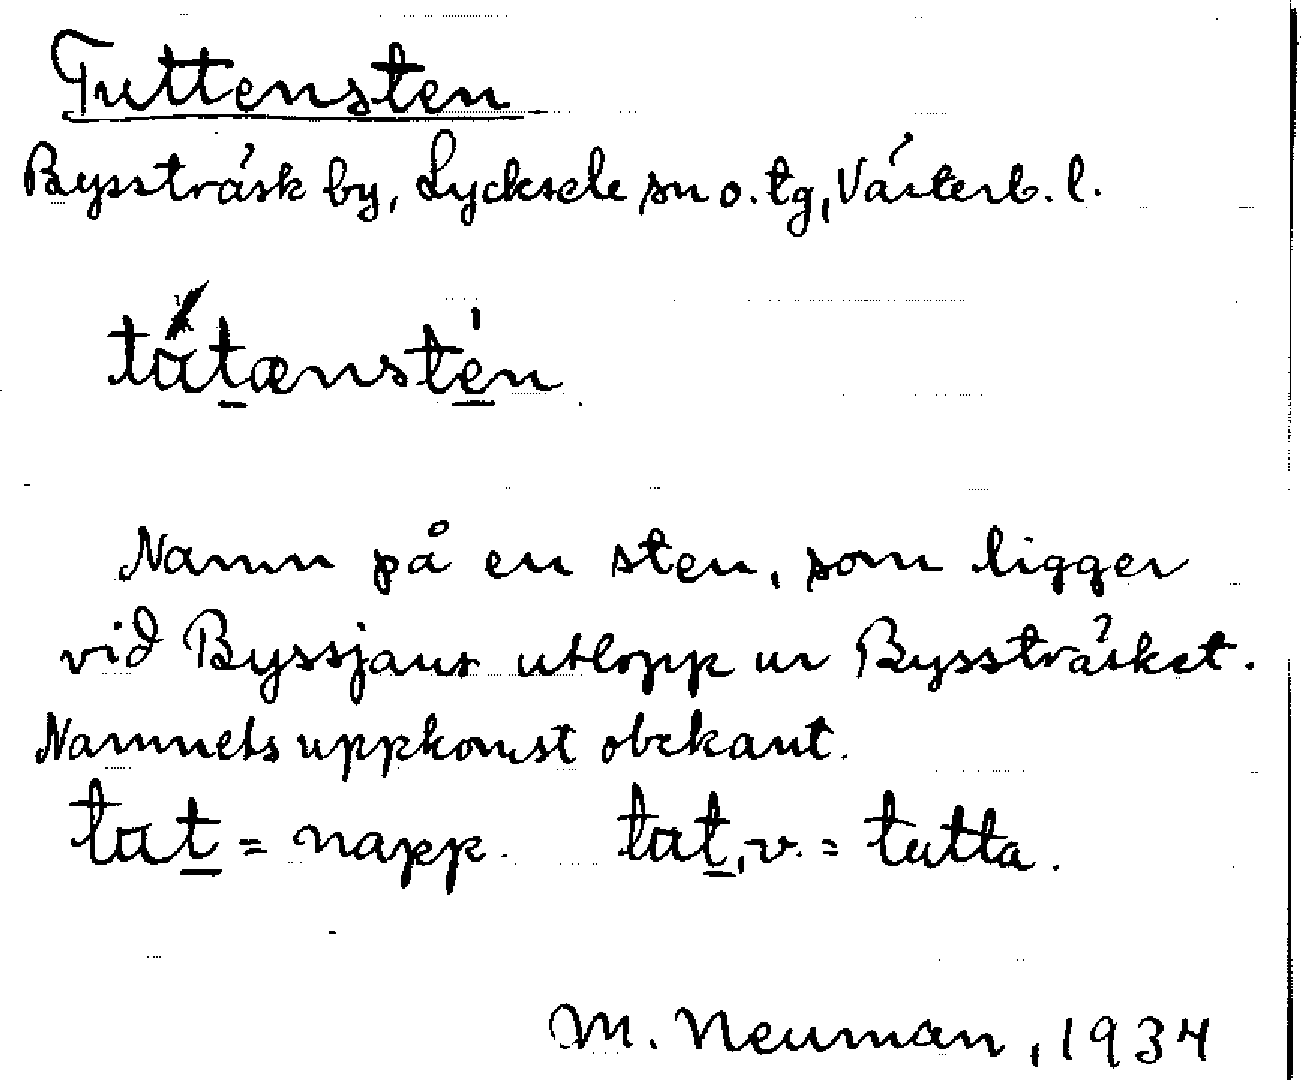 Tuttensten
Bysträsk by, Lycksele sn o. tg, Västerb. l.
tátænstén
Namn på en sten, som ligger
vid Byssjans utlopp ur Byssträsket.
Namnets uppkomst obekant.
tat = napp. tat, v. = tutta.
M. Neuman, 1934